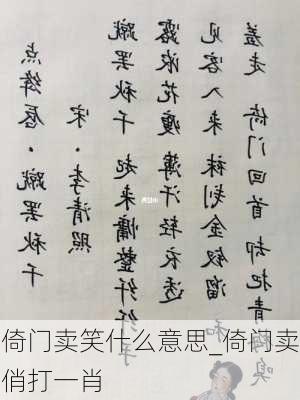 点绛唇·蹴罢秋千
宋·李清照
蹴罢秋千 起来慵整纤纤手
露浓花瘦 薄汗轻衣透
见客入来 袜刬金钗溜 和
羞走 倚门回首 却把青梅嗅
倚门卖笑什么意思_倚门卖
俏打一肖